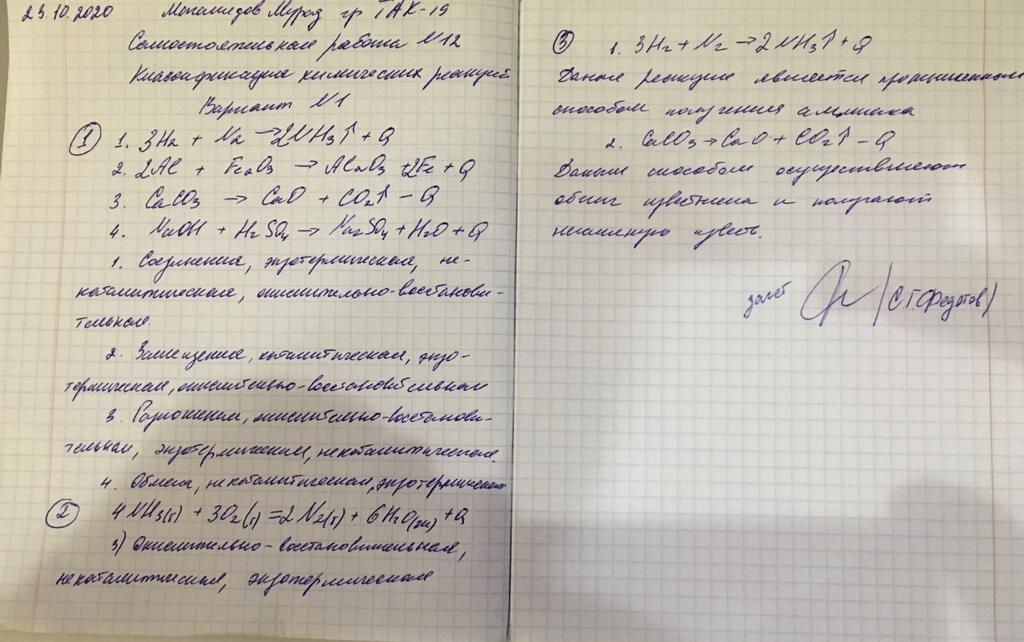 23.10.2020 Магомедов Мурад гр ТАК-19
Самостоятельная работа N12
Классификация химических реакций
Вариант N1
① 1. 3H₂ + N₂ → 2NH₃↑ + Q
2. 2Al + Fe₂O₃ → Al₂O₃ + 2Fe + Q
3. CaCO₃ → CaO + CO₂↑ - Q
4. NaOH + H₂SO₄ → Na₂SO₄ + H₂O + Q
1. Соединения, экзотермическая, не-
каталитическая, окислительно-восстанови-
тельная.
2. Замещения, каталитическая, экзо-
термическая, окислительно-восстановительная
3. Разложения, окислительно-восстанови-
тельная, эндотермическая, некаталитическая.
4. Обмена, некаталитическая, экзотермическая
② 4NH₃(г) + 3O₂(г) = 2N₂(г) + 6H₂O(ж) + Q
3) Окислительно-восстановительная,
некаталитическая, экзотермическая
③ 1. 3H₂ + N₂ → 2NH₃↑ + Q
Данная реакция является промышленным
способом получения аммиака
2. CaCO₃ → CaO + CO₂↑ - Q
Данным способом осуществляют
обжиг известняка и получают
негашеную известь.
зачёт (С.Г.Федотов)